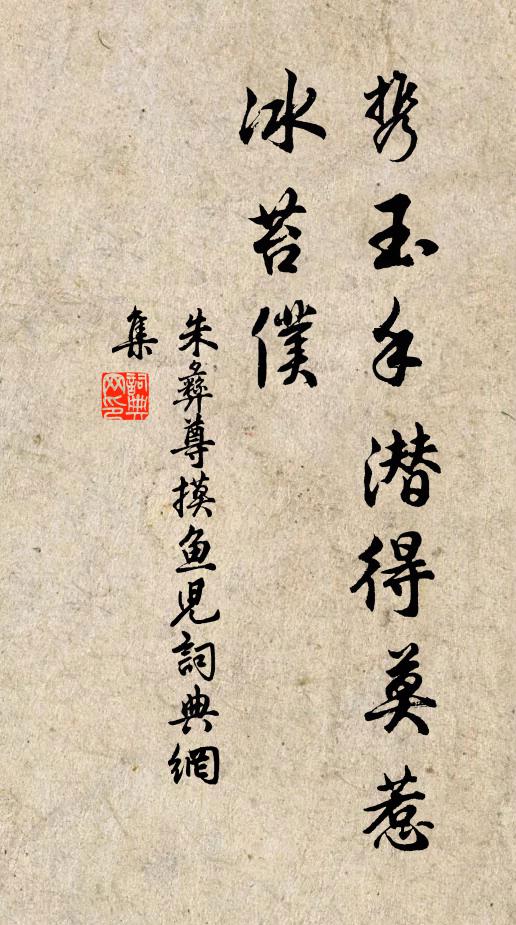 携玉手潜得莫惹
冰苔僕
朱彝尊摸鱼児詞典網
集
詞典網印